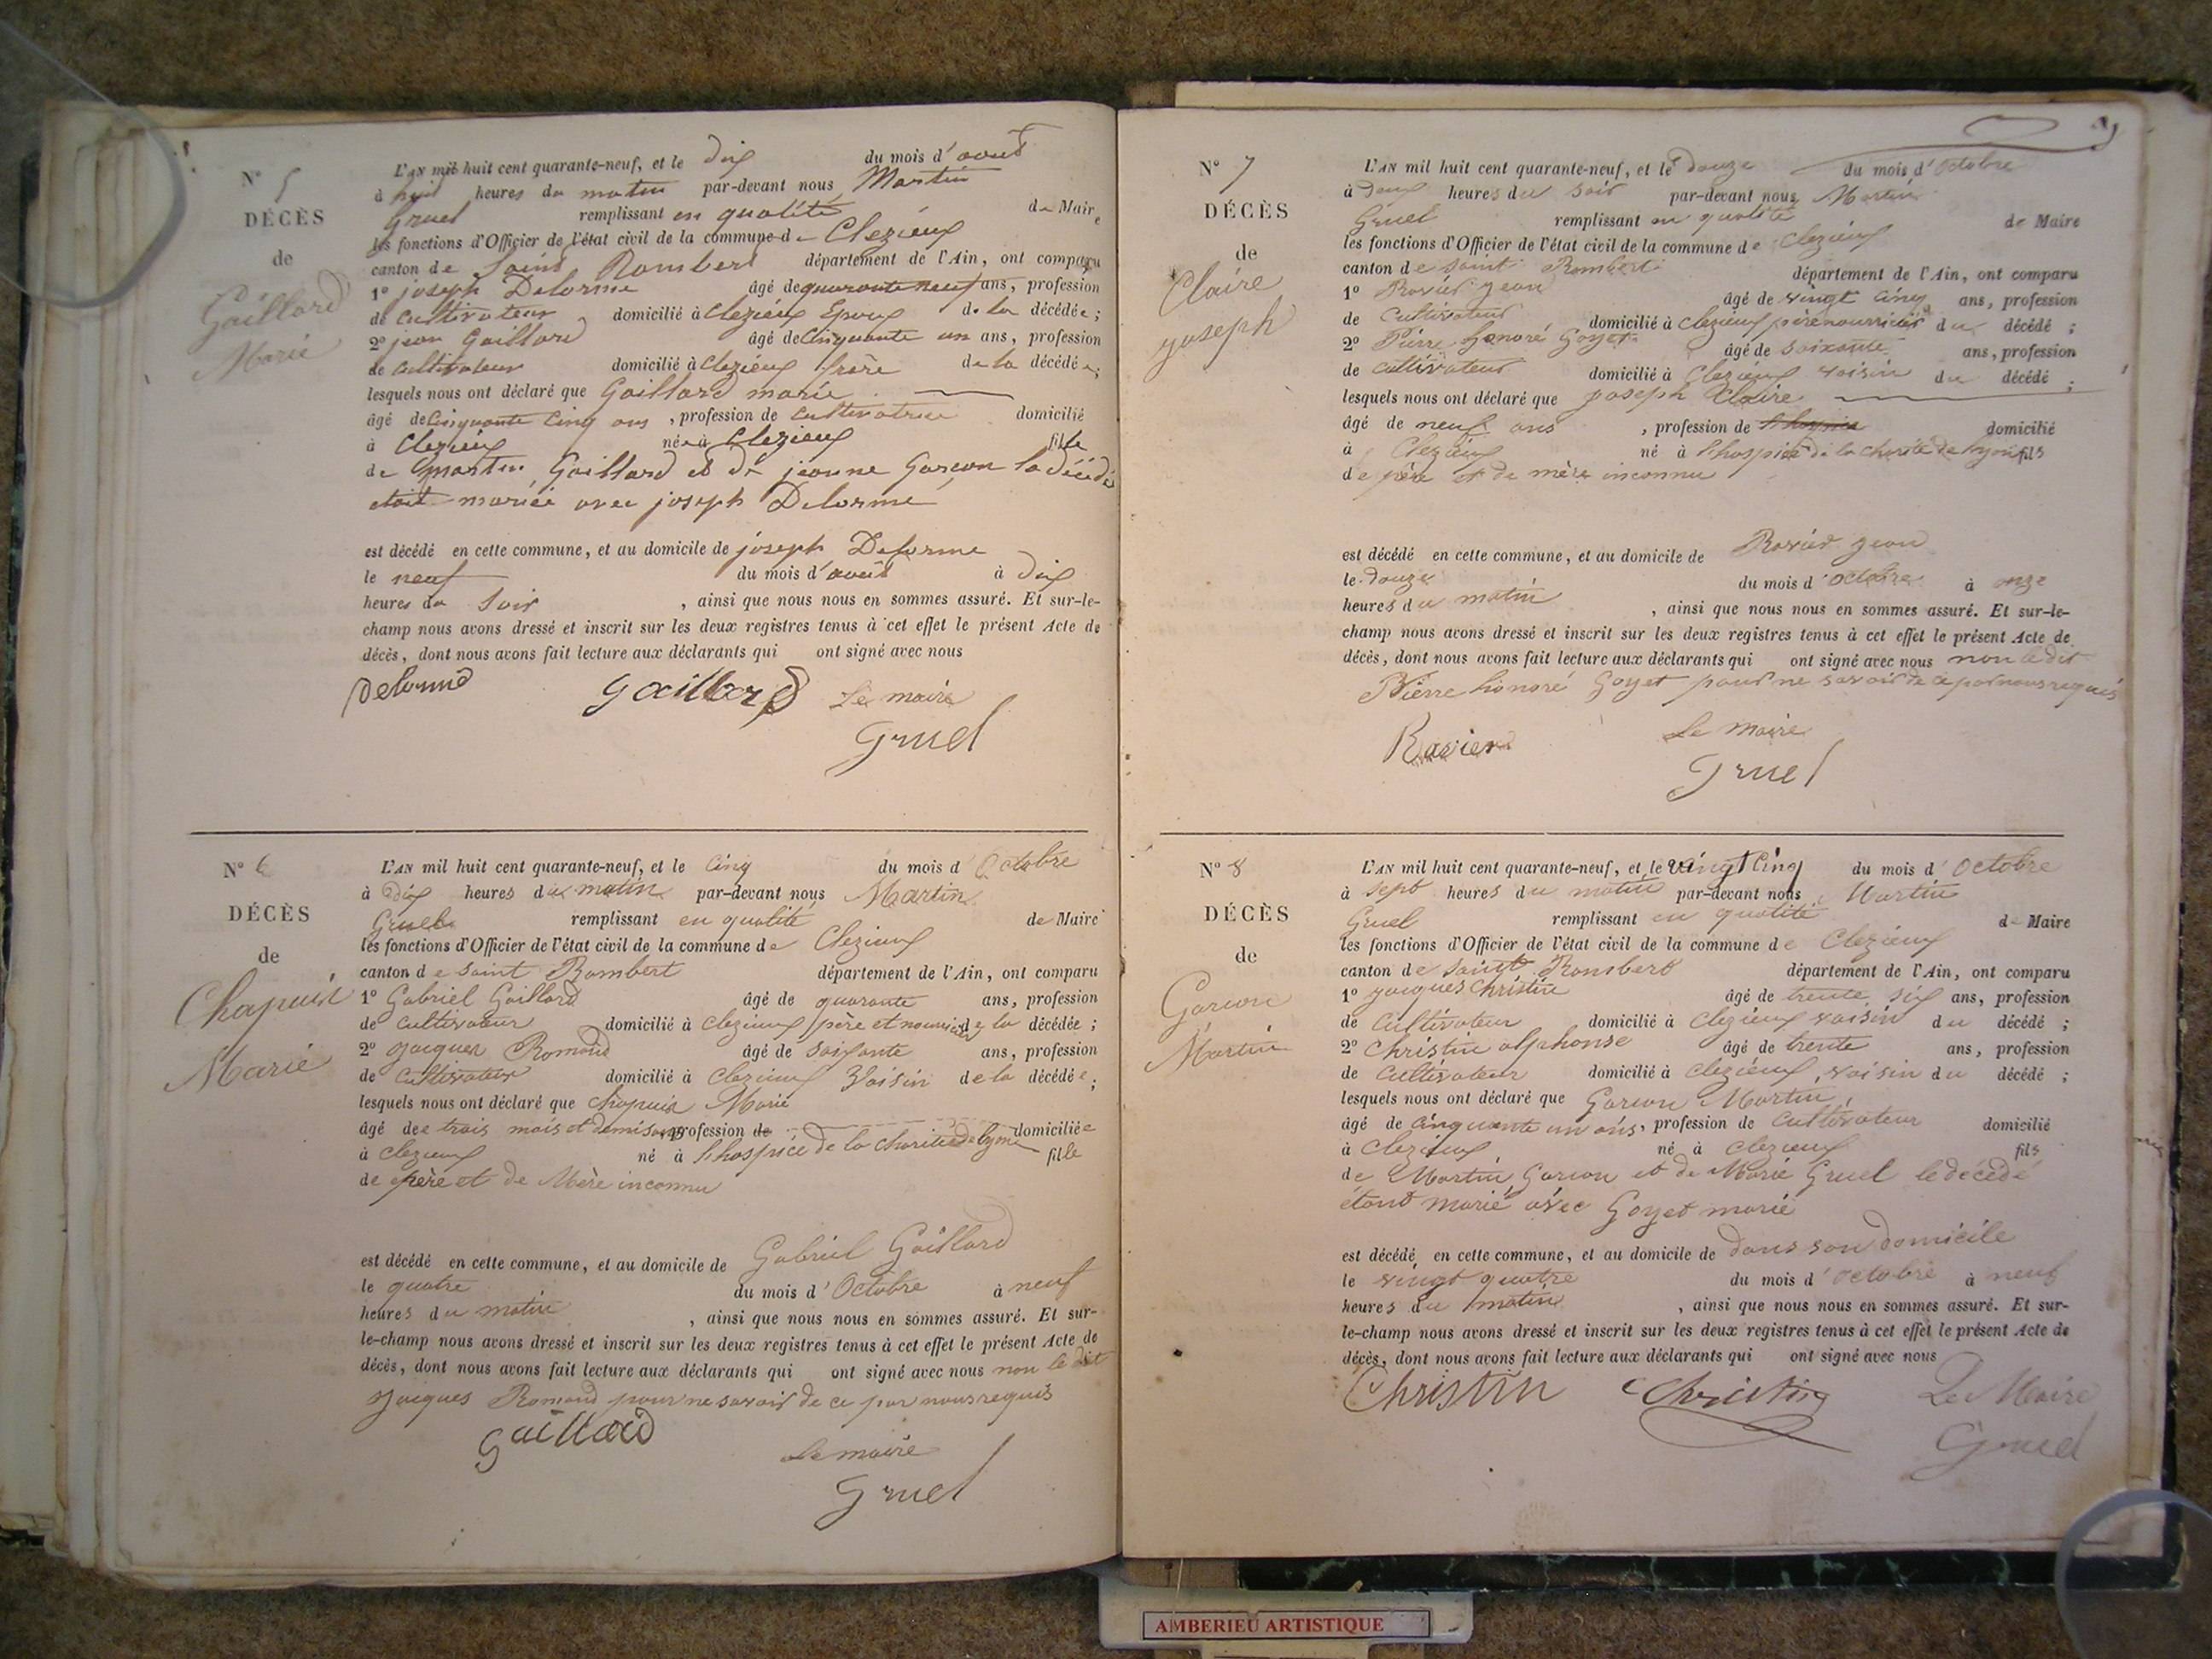 N° 5
DÉCÈS
de
Gaillard
Marie
L'AN mil huit cent quarante-neuf, et le dix du mois d'aout
à huit heures du matin par-devant nous Martin
Gruel remplissant en qualité de Maire
les fonctions d'Officier de l'état civil de la commune de Clezieux
canton de Saint Rambert département de l'Ain, ont comparu
1° joseph Delorme âgé de quarante neuf ans, profession
de cultivateur domicilié à Clezieux Epoux de la décédée;
2° jean Gaillard âgé de Cinquante un ans, profession
de cultivateur domicilié à Clezieux frère de la décédée;
lesquels nous ont déclaré que Gaillard marie
âgé de Cinquante Cinq ans , profession de cultivatrice domicilié
à Clezieux née à Clezieux fille
de Martin Gaillard et de jeanne Garcon la décédé
etait mariée avec joseph Delorme
est décédé en cette commune, et au domicile de joseph Delorme
le neuf du mois d'aout à dix
heures du soir , ainsi que nous nous en sommes assuré. Et sur-le-
champ nous avons dressé et inscrit sur les deux registres tenus à cet effet le présent Acte de
décès, dont nous avons fait lecture aux déclarants qui ont signé avec nous
Delorme Gaillard Le maire
Gruel
N° 6
DÉCÈS
de
Chapuis
Marie
L'AN mil huit cent quarante-neuf, et le cinq du mois d'Octobre
à dix heures du matin par-devant nous Martin
Gruel remplissant en qualité de Maire
les fonctions d'Officier de l'état civil de la commune de Clezieux
canton de saint Rambert département de l'Ain, ont comparu
1° Gabriel Gaillard âgé de quarante ans, profession
de cultivateur domicilié à Clezieux père et nourricier de la décédée;
2° Jacques Romand âgé de soixante ans, profession
de cultivateur domicilié à Clezieux Voisin de la décédée;
lesquels nous ont déclaré que Chapuis Marie
âgé dee trois mois et demis ans profession de domiciliée
à clezieux né à l'hospice de la charité de lyon fille
de père et de Mère inconnu
est décédé en cette commune, et au domicile de Gabriel Gaillard
le quatre du mois d'Octobre à neuf
heures du matin , ainsi que nous nous en sommes assuré. Et sur-
le-champ nous avons dressé et inscrit sur les deux registres tenus à cet effet le présent Acte de
décès, dont nous avons fait lecture aux déclarants qui ont signé avec nous non le dit
Jacques Romand pour ne savoir de ce par nous requis
Gaillard
Le maire
Gruel
N° 7
DÉCÈS
de
Claire
joseph
L'AN mil huit cent quarante-neuf, et le douze du mois d'Octobre
à deux heures du soir par-devant nous Martin
Gruel remplissant en qualité de Maire
les fonctions d'Officier de l'état civil de la commune de Clezieux
canton de saint Rambert département de l'Ain, ont comparu
1° Ravier jean âgé de vingt cinq ans, profession
de cultivateur domicilié à clezieux père nourricier du décédé;
2° Pierre honoré Goyet âgé de soixante ans, profession
de cultivateur domicilié à Clezieux voisin du décédé;
lesquels nous ont déclaré que joseph Claire
âgé de neuf ans , profession de domicilié
à Clezieux né à l'hospice de la charité de lyon fils
de père et de mère inconnu
est décédé en cette commune, et au domicile de Ravier jean
le douze du mois d'Octobre à onze
heures du matin , ainsi que nous nous en sommes assuré. Et sur-le-
champ nous avons dressé et inscrit sur les deux registres tenus à cet effet le présent Acte de
décès, dont nous avons fait lecture aux déclarants qui ont signé avec nous non le dit
Pierre honoré Goyet pour ne savoir de ce par nous requis
Ravier Le maire
Gruel
N° 8
DÉCÈS
de
Garcon
Martin
L'AN mil huit cent quarante-neuf, et le vingt cinq du mois d'Octobre
à sept heures du matin par-devant nous Martin
Gruel remplissant en qualité de Maire
les fonctions d'Officier de l'état civil de la commune de Clezieux
canton de saint Rambert département de l'Ain, ont comparu
1° jacques Christin âgé de trente six ans, profession
de cultivateur domicilié à clezieux voisin du décédé;
2° Christin alphonse âgé de trente ans, profession
de cultivateur domicilié à clezieux, voisin du décédé;
lesquels nous ont déclaré que Garcon Martin
âgé de cinquante un ans, profession de cultivateur domicilié
à clezieux né à clezieux fils
de Martin Garcon et de Marie Gruel le décédé
étant marié avec Goyet marie
est décédé en cette commune, et au domicile de dans son domicile
le vingt quatre du mois d'octobre à neuf
heures du matin , ainsi que nous nous en sommes assuré. Et sur-
le-champ nous avons dressé et inscrit sur les deux registres tenus à cet effet le présent Acte de
décès, dont nous avons fait lecture aux déclarants qui ont signé avec nous
Christin Christin Le Maire
Gruel
AMBERIEU ARTISTIQUE